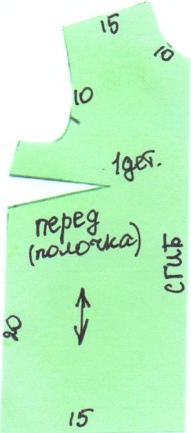 15
10
10
1дет.
перед
(полочка)
сгиб
20
15